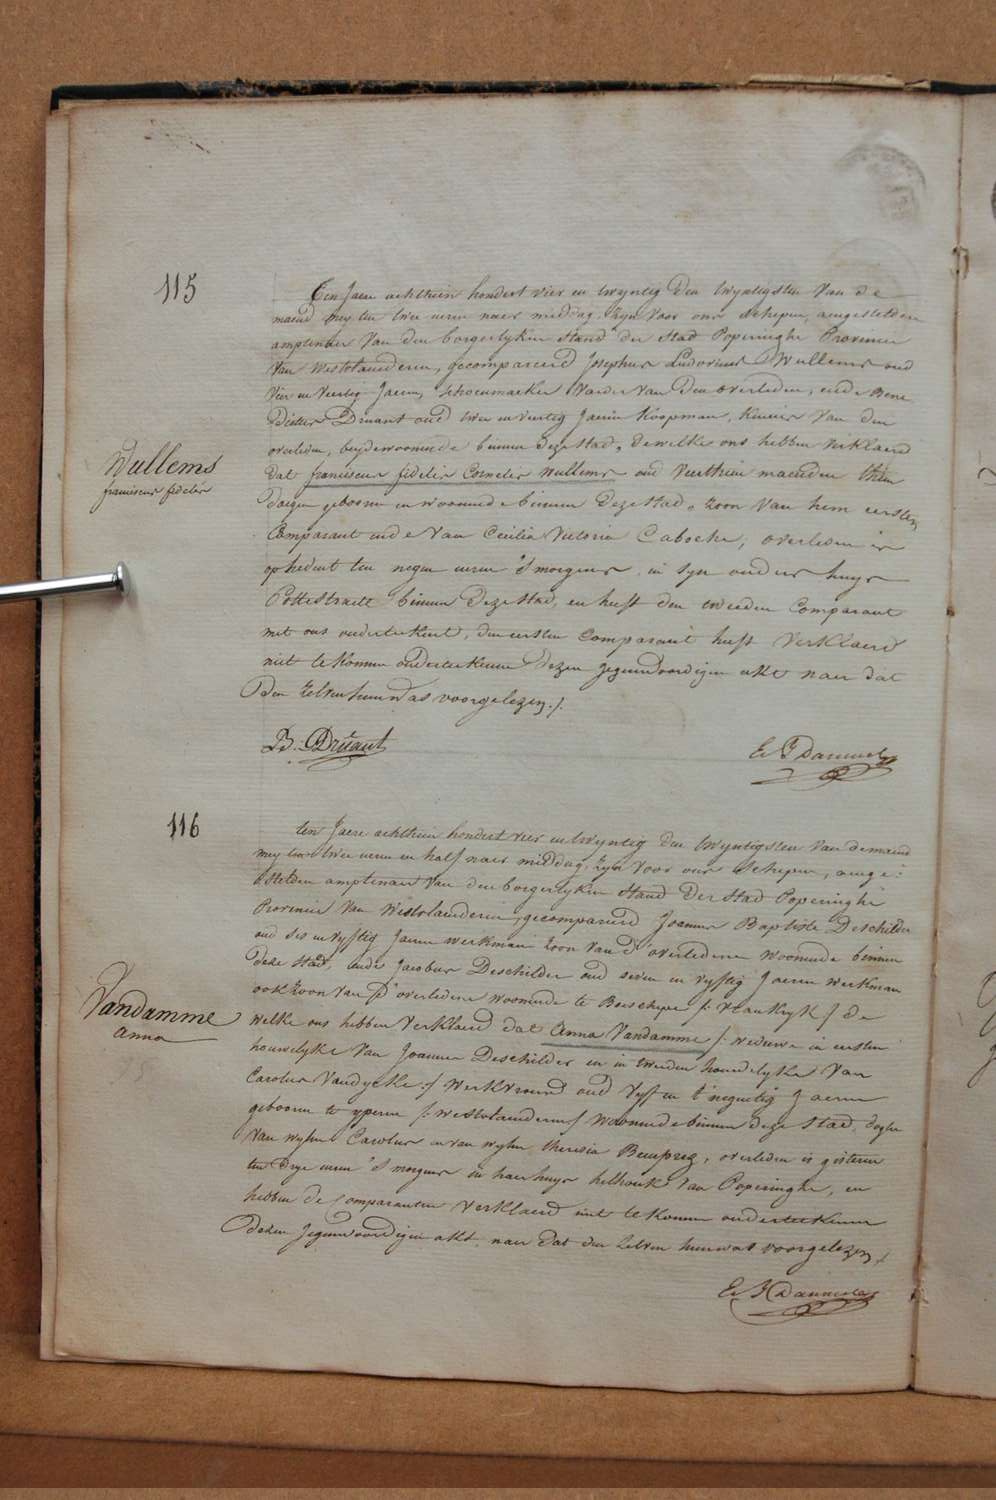 115
Ten Jaere achthien hondert vier en twyntig den twyntigsten van de
maend mey ten twee uren naer middag, Zyn voor ons schepen, aengestelden
amptenaer van den borgerlyken stand der stad Poperinghe Provincie
van Westvlaenderen, gecompareerd Josephus Ludovicus Wullems oud
vier en veertig Jaeren, schoenmaeker vader van den overleden, ende Bene
dictus Druant oud twee en veertig Jaeren Koopman, kennis van den
overleden, beyde woonende binnen deze stad, dewelke ons hebben verklaerd
Wullems
franciscus fidelis
dat franciscus fidelis Cornelis Wullems oud veerthien maenden thien
daegen geboren en woonende binnen deze stad, zoon van hem eersten
Comparant ende van Cecilia Victoria Caboche, overleden is
op hedent ten negen uren 's morgens, in syn ouders huys
Pottestraete binnen deze stad, en heeft den tweeden Comparant
met ons onderteekent, den eersten Comparant heeft verklaerd
niet te konnen onderteekenen dezen gegenwoordigen akt naer dat
den zelven hem was voorgelezen ./.
B. Druant
116
ten Jaere achthien hondert vier en twyntig den twyntigsten van de maend
mey ten twee uren en half naer middag, zyn voor ons schepen, aenge:
stelden amptenaer van den borgerlyken stand der stad Poperinghe
Provincie van Westvlaenderen, gecompareerd Joannes Baptiste Deschilder
oud ses en vyftig Jaeren werkman zoon van d'overledene woonende binnen
deze stad, ende Jacobus Deschilder oud seven en vyftig Jaeren werkman
ook zoon van d'overledene woonende te Boeschepe /: vrankryk :/ de
Vandamme
Anna
welke ons hebben verklaerd dat Anna Vandamme /: weduwe in eersten
houwelyke van Joannes Deschilder en in tweeden houwelyke van
Carolus Vandycke :/ werkvrouw oud vyf en t'negentig Jaeren
geboren te yperen /: westvlaenderen :/ woonende binnen deze stad, dogter
van wylen Carolus en van wylen theresia Beuprez, overleden is gisteren
ten drye uren 's morgens in haer huys helhoek van Poperinghe, en
hebben de Comparanten verklaerd niet te konnen onderteekenen
dezen gegenwoordigen akt, naer dat den zelven hun was voorgelezen ./.